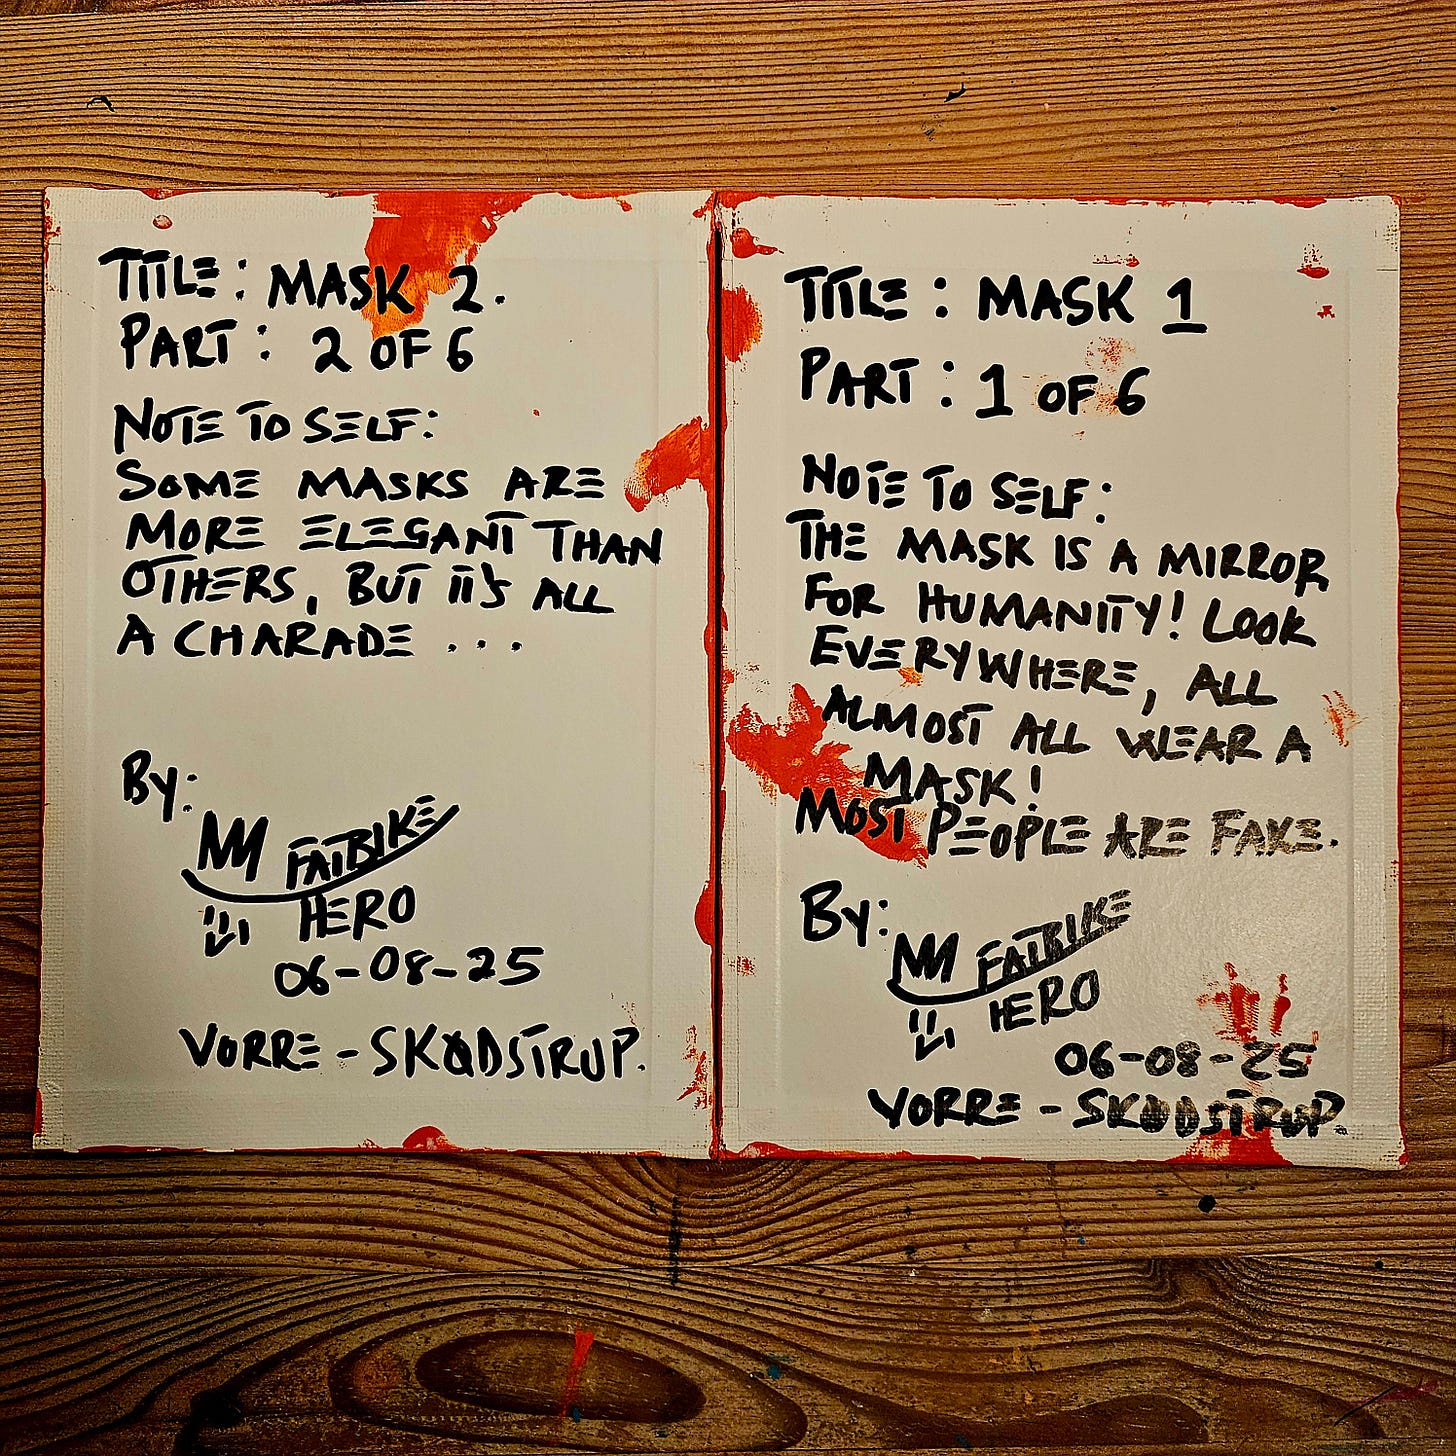 TITLE: MASK 2.
PART: 2 OF 6
NOTE TO SELF:
SOME MASKS ARE
MORE ELEGANT THAN
OTHERS, BUT IT'S ALL
A CHARADE ...
By:
FATBIKE
HERO
06-08-25
VORRE - SKØDSTRUP.
TITLE: MASK 1
PART: 1 OF 6
NOTE TO SELF:
THE MASK IS A MIRROR
FOR HUMANITY! LOOK
EVERYWHERE, ALL
ALMOST ALL WEAR A
MASK!
MOST PEOPLE ARE FAKE.
By:
FATBIKE
HERO
06-08-25
VORRE - SKØDSTRUP.